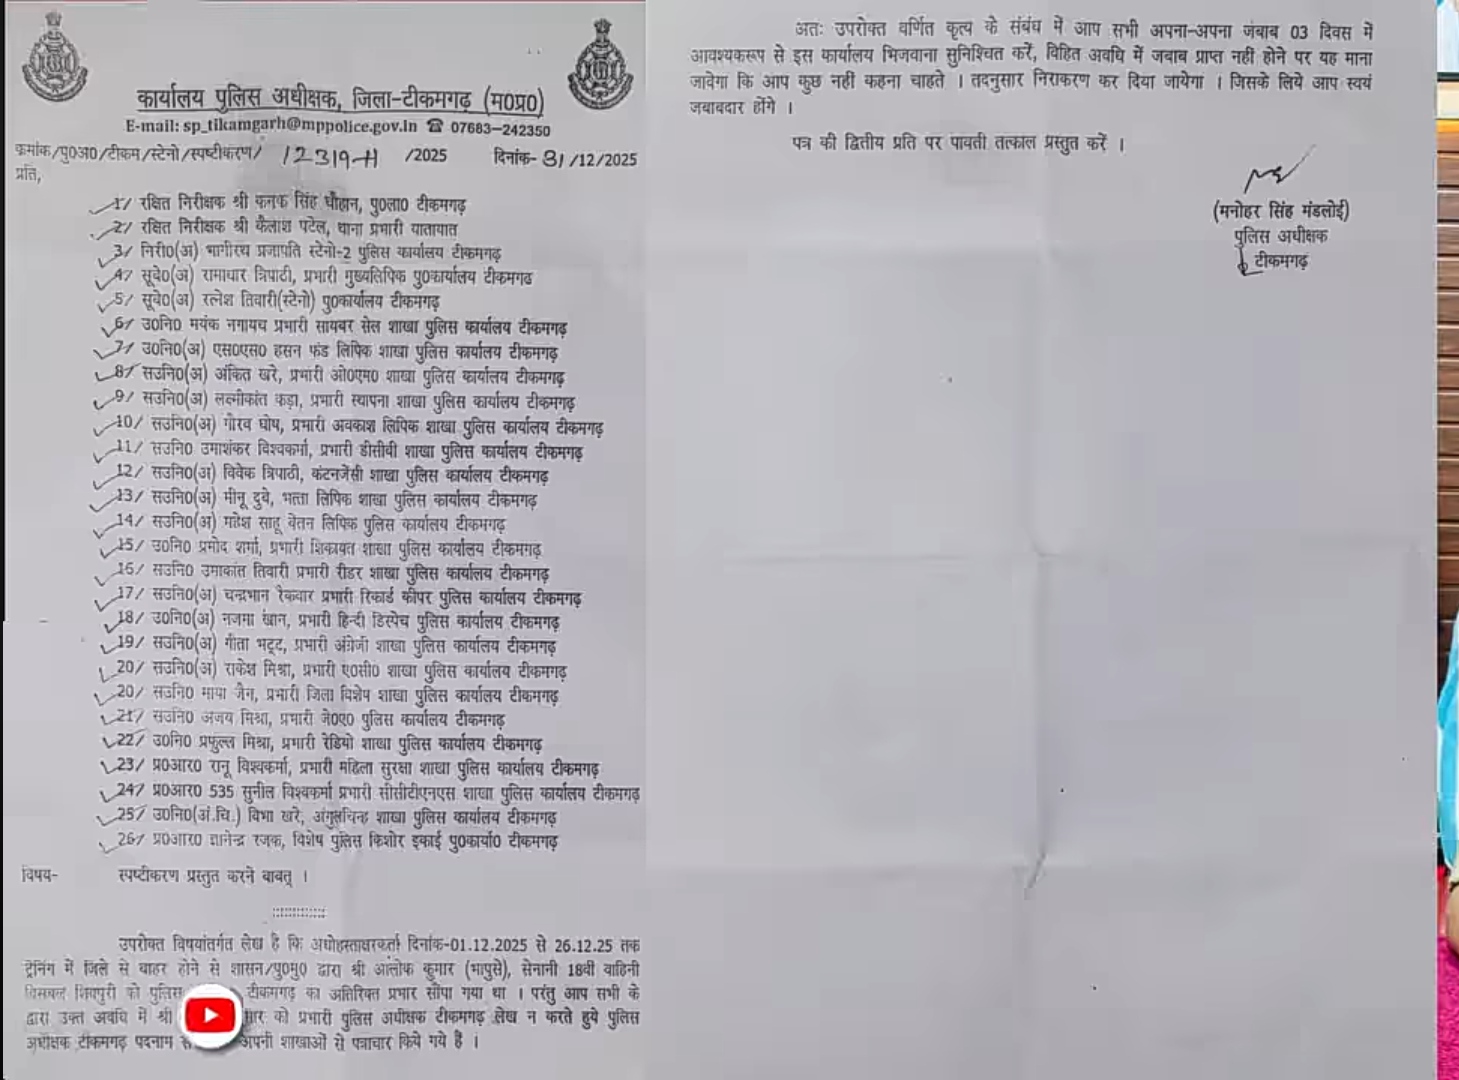 कार्यालय पुलिस अधीक्षक, जिला-टीकमगढ़ (म0प्र0)
E-mail: sp_tikamgarh@mppolice.gov.in ☎ 07683-242350
क्रमांक/पु0अ0/टीकम/स्टेनो/स्पष्टीकरण/ /2025 दिनांक- 31/12/2025
प्रति,
1/ रक्षित निरीक्षक श्री कनक सिंह चौहान, पु0ला0 टीकमगढ़
2/ रक्षित निरीक्षक श्री कैलाश पटेल, थाना प्रभारी यातायात
3/ निरी0(अ) भागीरथ प्रजापति स्टेनो-2 पुलिस कार्यालय टीकमगढ़
4/ सूबे0(अ) रामाधार त्रिपाठी, प्रभारी मुख्यलिपिक पु0कार्यालय टीकमगढ
5/ सूबे0(अ) रत्नेश तिवारी(स्टेनो) पु0कार्यालय टीकमगढ़
6/ उ0नि0 मयंक नगायच प्रभारी सायबर सेल शाखा पुलिस कार्यालय टीकमगढ़
7/ उ0नि0(अ) एस0एस0 हसन फंड लिपिक शाखा पुलिस कार्यालय टीकमगढ़
8/ सउनि0(अ) अंकित खरे, प्रभारी ओ0एम0 शाखा पुलिस कार्यालय टीकमगढ़
9/ सउनि0(अ) लक्ष्मीकांत कड़ा, प्रभारी स्थापना शाखा पुलिस कार्यालय टीकमगढ़
10/ सउनि0(अ) गौरव घोष, प्रभारी अवकाश लिपिक शाखा पुलिस कार्यालय टीकमगढ़
11/ सउनि0 उमाशंकर विश्वकर्मा, प्रभारी डीसीबी शाखा पुलिस कार्यालय टीकमगढ़
12/ सउनि0(अ) विवेक त्रिपाठी, कंटनजेंसी शाखा पुलिस कार्यालय टीकमगढ़
13/ सउनि0(अ) मीनू दुबे, भत्ता लिपिक शाखा पुलिस कार्यालय टीकमगढ़
14/ सउनि0(अ) महेश साहू वेतन लिपिक पुलिस कार्यालय टीकमगढ़
15/ उ0नि0 प्रमोद शर्मा, प्रभारी शिकायत शाखा पुलिस कार्यालय टीकमगढ़
16/ सउनि0 उमाकांत तिवारी प्रभारी रीडर शाखा पुलिस कार्यालय टीकमगढ़
17/ सउनि0(अ) चन्द्रभान रैकवार प्रभारी रिकार्ड कीपर पुलिस कार्यालय टीकमगढ़
18/ उ0नि0(अ) नजमा खान, प्रभारी हिन्दी डिस्पेच पुलिस कार्यालय टीकमगढ़
19/ सउनि0(अ) गीता भट्ट, प्रभारी अंग्रेजी शाखा पुलिस कार्यालय टीकमगढ़
20/ सउनि0(अ) राकेश मिश्रा, प्रभारी ए0सी0 शाखा पुलिस कार्यालय टीकमगढ़
20/ सउनि0 माया जैन, प्रभारी जिला विशेष शाखा पुलिस कार्यालय टीकमगढ़
21/ सउनि0 अजय मिश्रा, प्रभारी जे0ए0 पुलिस कार्यालय टीकमगढ़
22/ उ0नि0 प्रफुल्ल मिश्रा, प्रभारी रेडियो शाखा पुलिस कार्यालय टीकमगढ़
23/ प्र0आर0 रानू विश्वकर्मा, प्रभारी महिला सुरक्षा शाखा पुलिस कार्यालय टीकमगढ़
24/ प्र0आर0 535 सुनील विश्वकर्मा प्रभारी सीसीटीएनएस शाखा पुलिस कार्यालय टीकमगढ़
25/ उ0नि0(अं.चि.) विभा खरे, अंगुलचिन्ह शाखा पुलिस कार्यालय टीकमगढ़
26/ प्र0आर0 ज्ञानेन्द्र रजक, विशेष पुलिस किशोर इकाई पु0कार्या0 टीकमगढ़
विषय- स्पष्टीकरण प्रस्तुत करने बावत् ।
उपरोक्त विषयांतर्गत लेख है कि अधोहस्ताक्षरकर्ता दिनांक-01.12.2025 से 26.12.25 तक
ट्रेनिंग में जिले से बाहर होने से शासन/पु0मु0 द्वारा श्री आलोक कुमार (भापुसे), सेनानी 18वी वाहिनी
विसबल शिवपुरी को पुलिस टीकमगढ़ का अतिरिक्त प्रभार सौंपा गया था । परंतु आप सभी के
द्वारा उक्त अवधि में श्री को प्रभारी पुलिस अधीक्षक टीकमगढ़ लेख न करते हुये पुलिस
अधीक्षक टीकमगढ़ पदनाम अपनी शाखाओं से पत्राचार किये गये है ।
अतः उपरोक्त वर्णित कृत्य के संबंध में आप सभी अपना-अपना जंबाब 03 दिवस में
आवश्यकरूप से इस कार्यालय भिजवाना सुनिश्चित करें, विहित अवधि में जवाब प्राप्त नही होने पर यह माना
जावेगा कि आप कुछ नही कहना चाहते । तदनुसार निराकरण कर दिया जायेगा । जिसके लिये आप स्वयं
जबाबदार होंगे ।
पत्र की द्वितीय प्रति पर पावती तत्काल प्रस्तुत करें ।
(मनोहर सिंह मंडलोई)
पुलिस अधीक्षक
टीकमगढ़